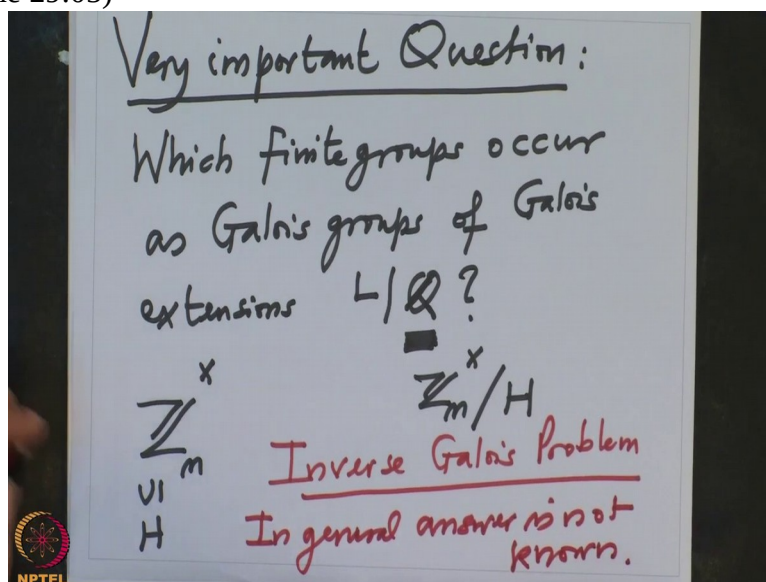 Very important Question:
Which finite groups occur
as Galois groups of Galois
extensions L|ℚ ?
ℤₘˣ
ℤₘˣ/H
UI
H
Inverse Galois Problem
In general answer is not
known.
NPTEL